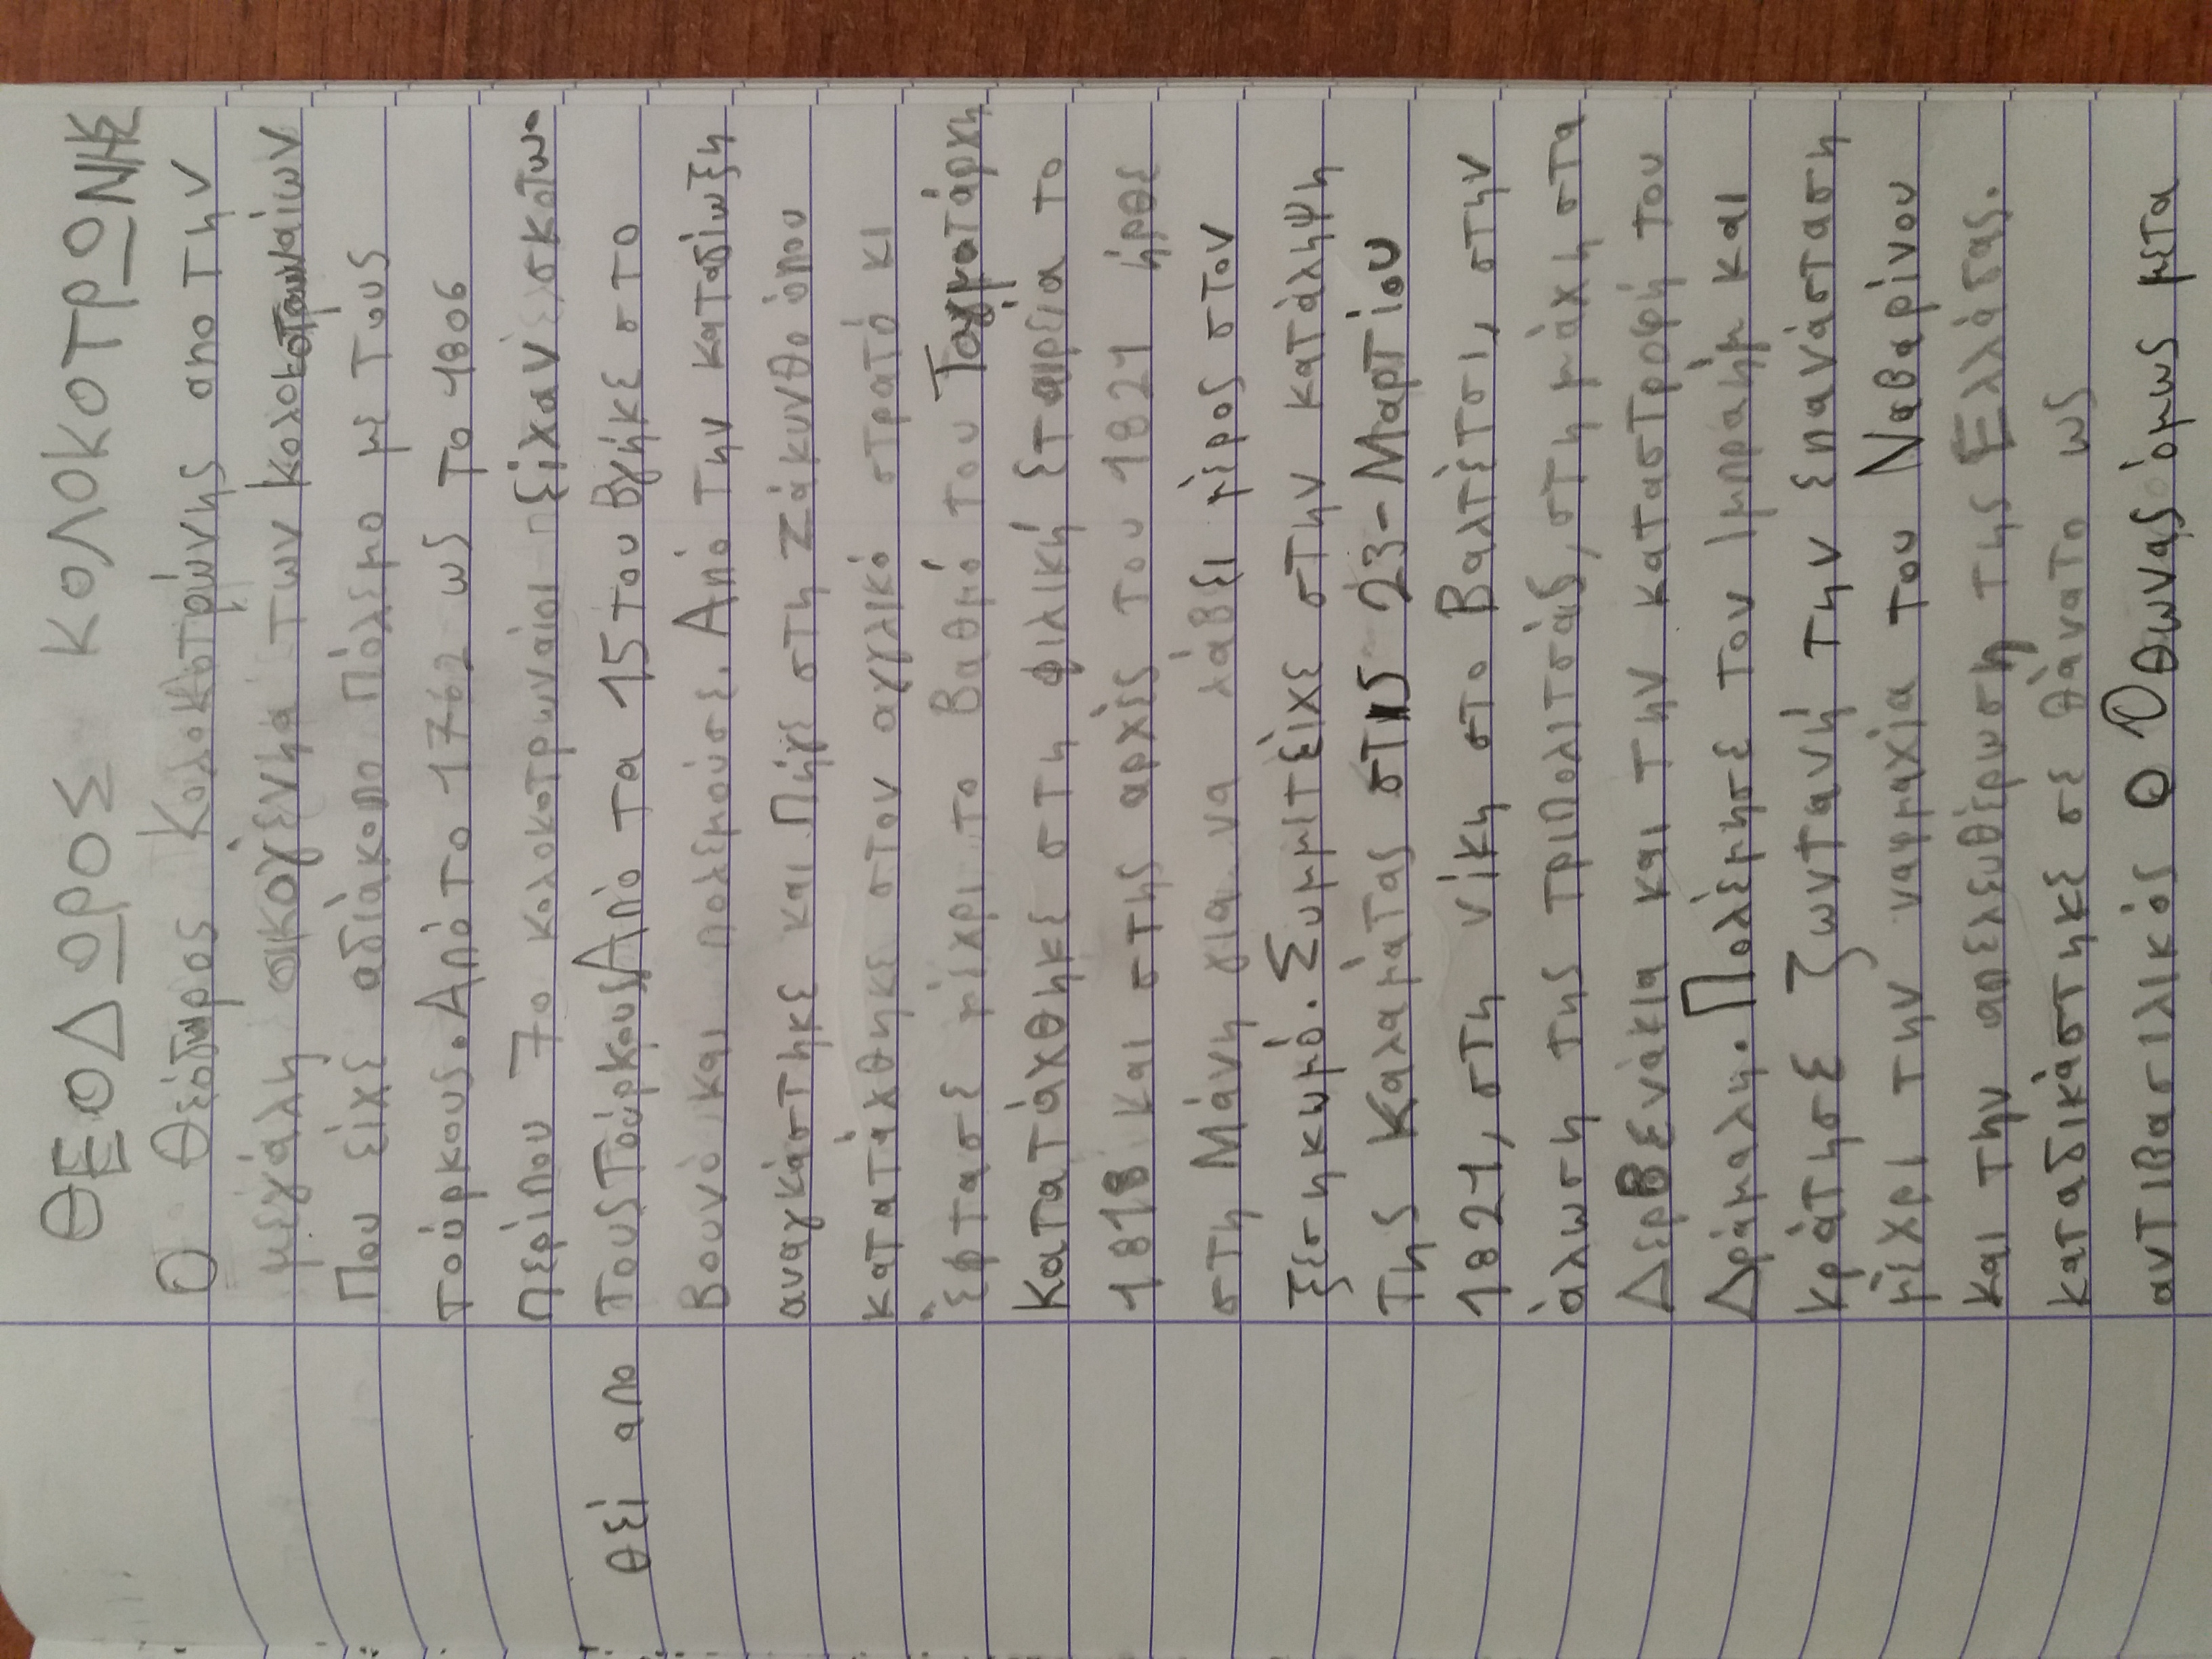 ΘΕΟΔΩΡΟΣ ΚΟΛΟΚΟΤΡΩΝΗΣ
Ο Θεόδωρος Κολοκοτρώνης απο την
μεγάλη οικογένηα των Κολοκοτρωναίων
Που είχε αδίακοπο Πόλεμο με τους
τούρκους. Από το 1762 ως το 1806
Περίπου 70 κολοκοτρωναίοι είχαν σκοτω-
θεί απο τους Τούρκους Από τα 15 του Βγήκε στο
Βουνό και πολεμούσε. Από την καταδίωξη
αναγκάστηκε και Πήγε στη Ζάκυνθο όπου
κατατάχθηκε στον αγγλικό στρατό κι
έφτασε μέχρι το Βαθμό του Ταγματάρχη
Κατατάχθηκε στη φιλική Εταιρεία το
1818 και στης αρχές του 1821 ήρθε
στη Μάνη για να λάβει μέρος στον
ξεσηκωμό. Συμμετείχε στην κατάληψη
της Καλαμάτας στις 23-Μαρτίου
1821, στη νίκη στο Βαλτέτσι, στην
άλωση της τριπολιτσάς, στη μάχη στα
Δερβενάκια και την καταστροφή του
Δράμαλη. Πολέμησε τον Ιμπραήμ και
κράτησε ζωντανή την επανάσταση
μέχρι την ναυμαχία του Ναβαρίνου
και την απελευθέρωση της Ελλάδας.
καταδικάστηκε σε θάνατο ως
αντιβασιλικός Ο Οθωνας όμως μετα